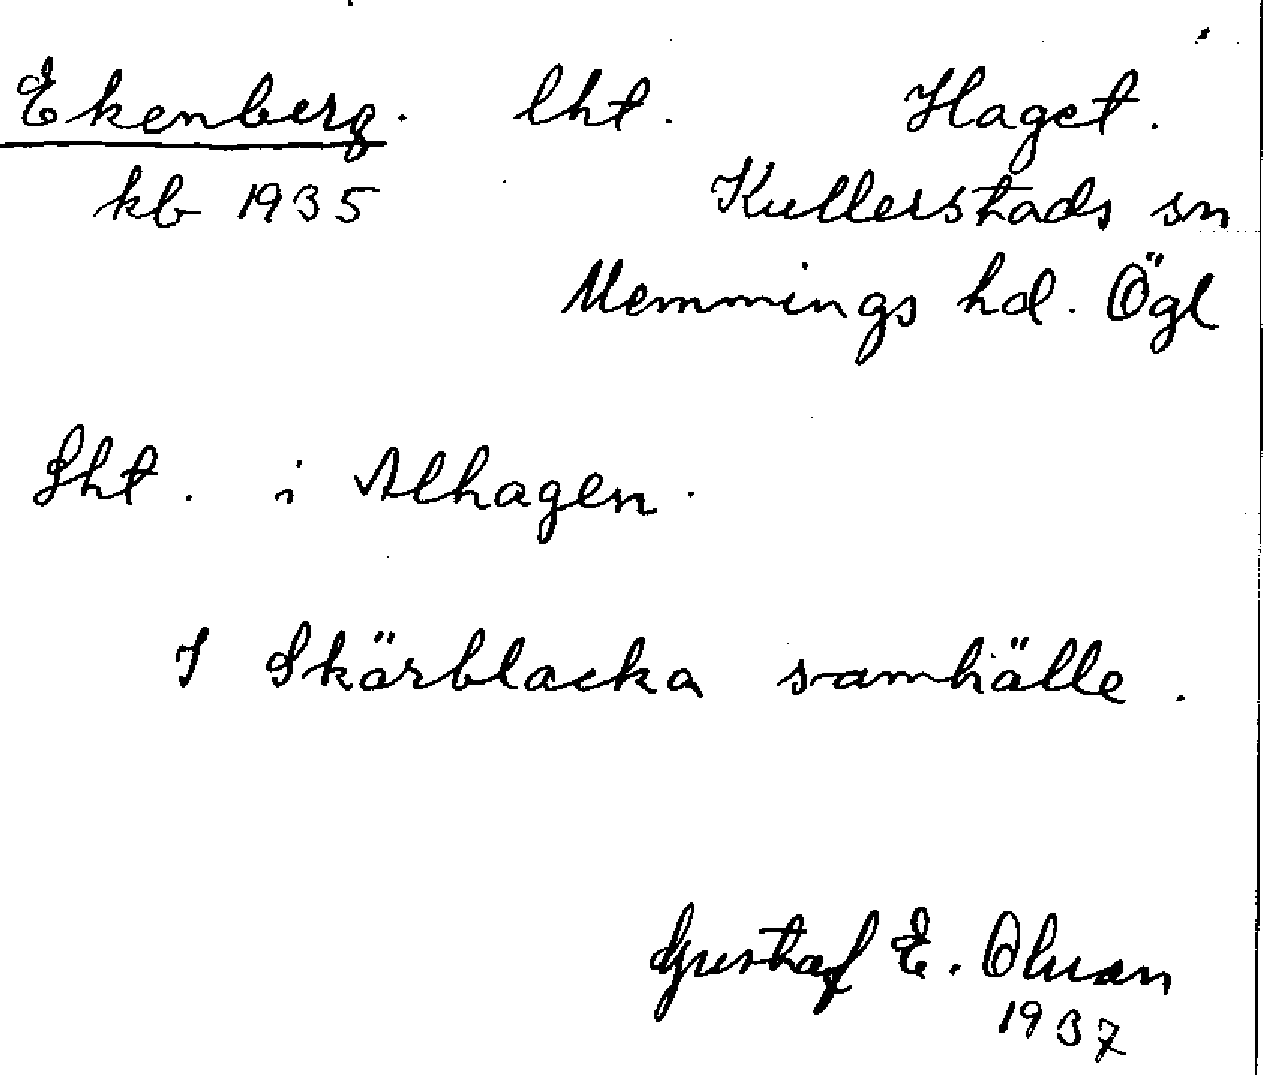 Ekenberg. lht. Haget.
kb 1935 Kullerstads sn
Memmings hd. Ögl
Lht. i Alhagen.
I Skärblacka samhälle.
Gustaf E. Olsson
1937